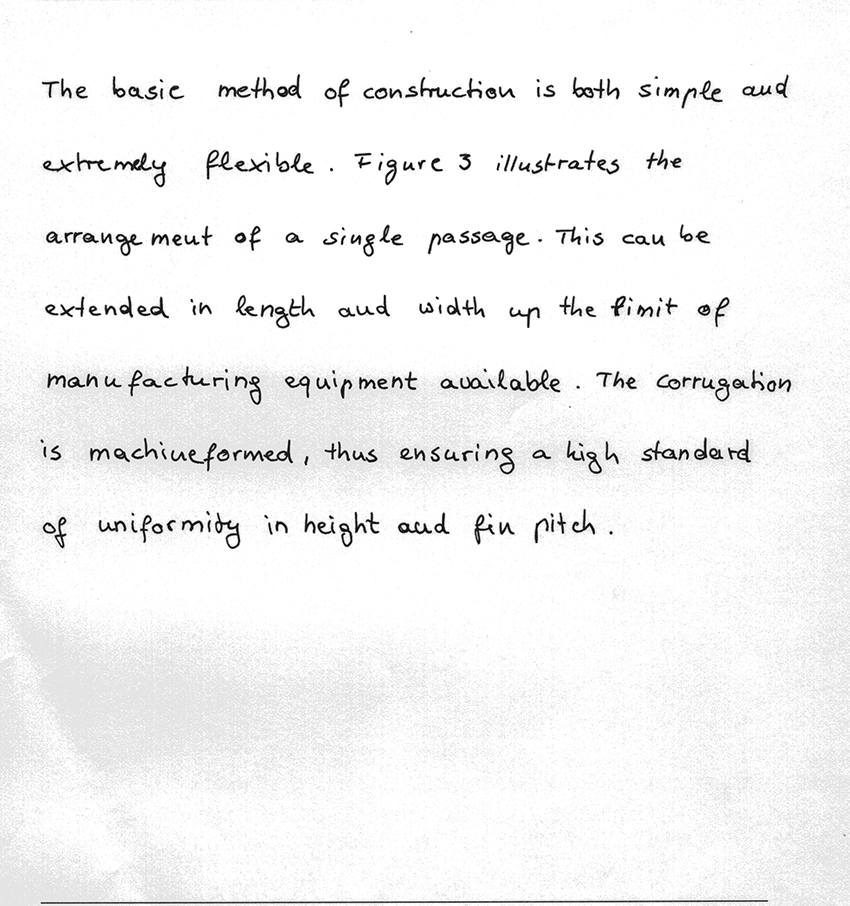 The basic method of construction is both simple and
extremely flexible. Figure 3 illustrates the
arrangement of a single passage. This can be
extended in length and width up the limit of
manufacturing equipment available. The corrugation
is machineformed, thus ensuring a high standard
of uniformity in height and fin pitch.